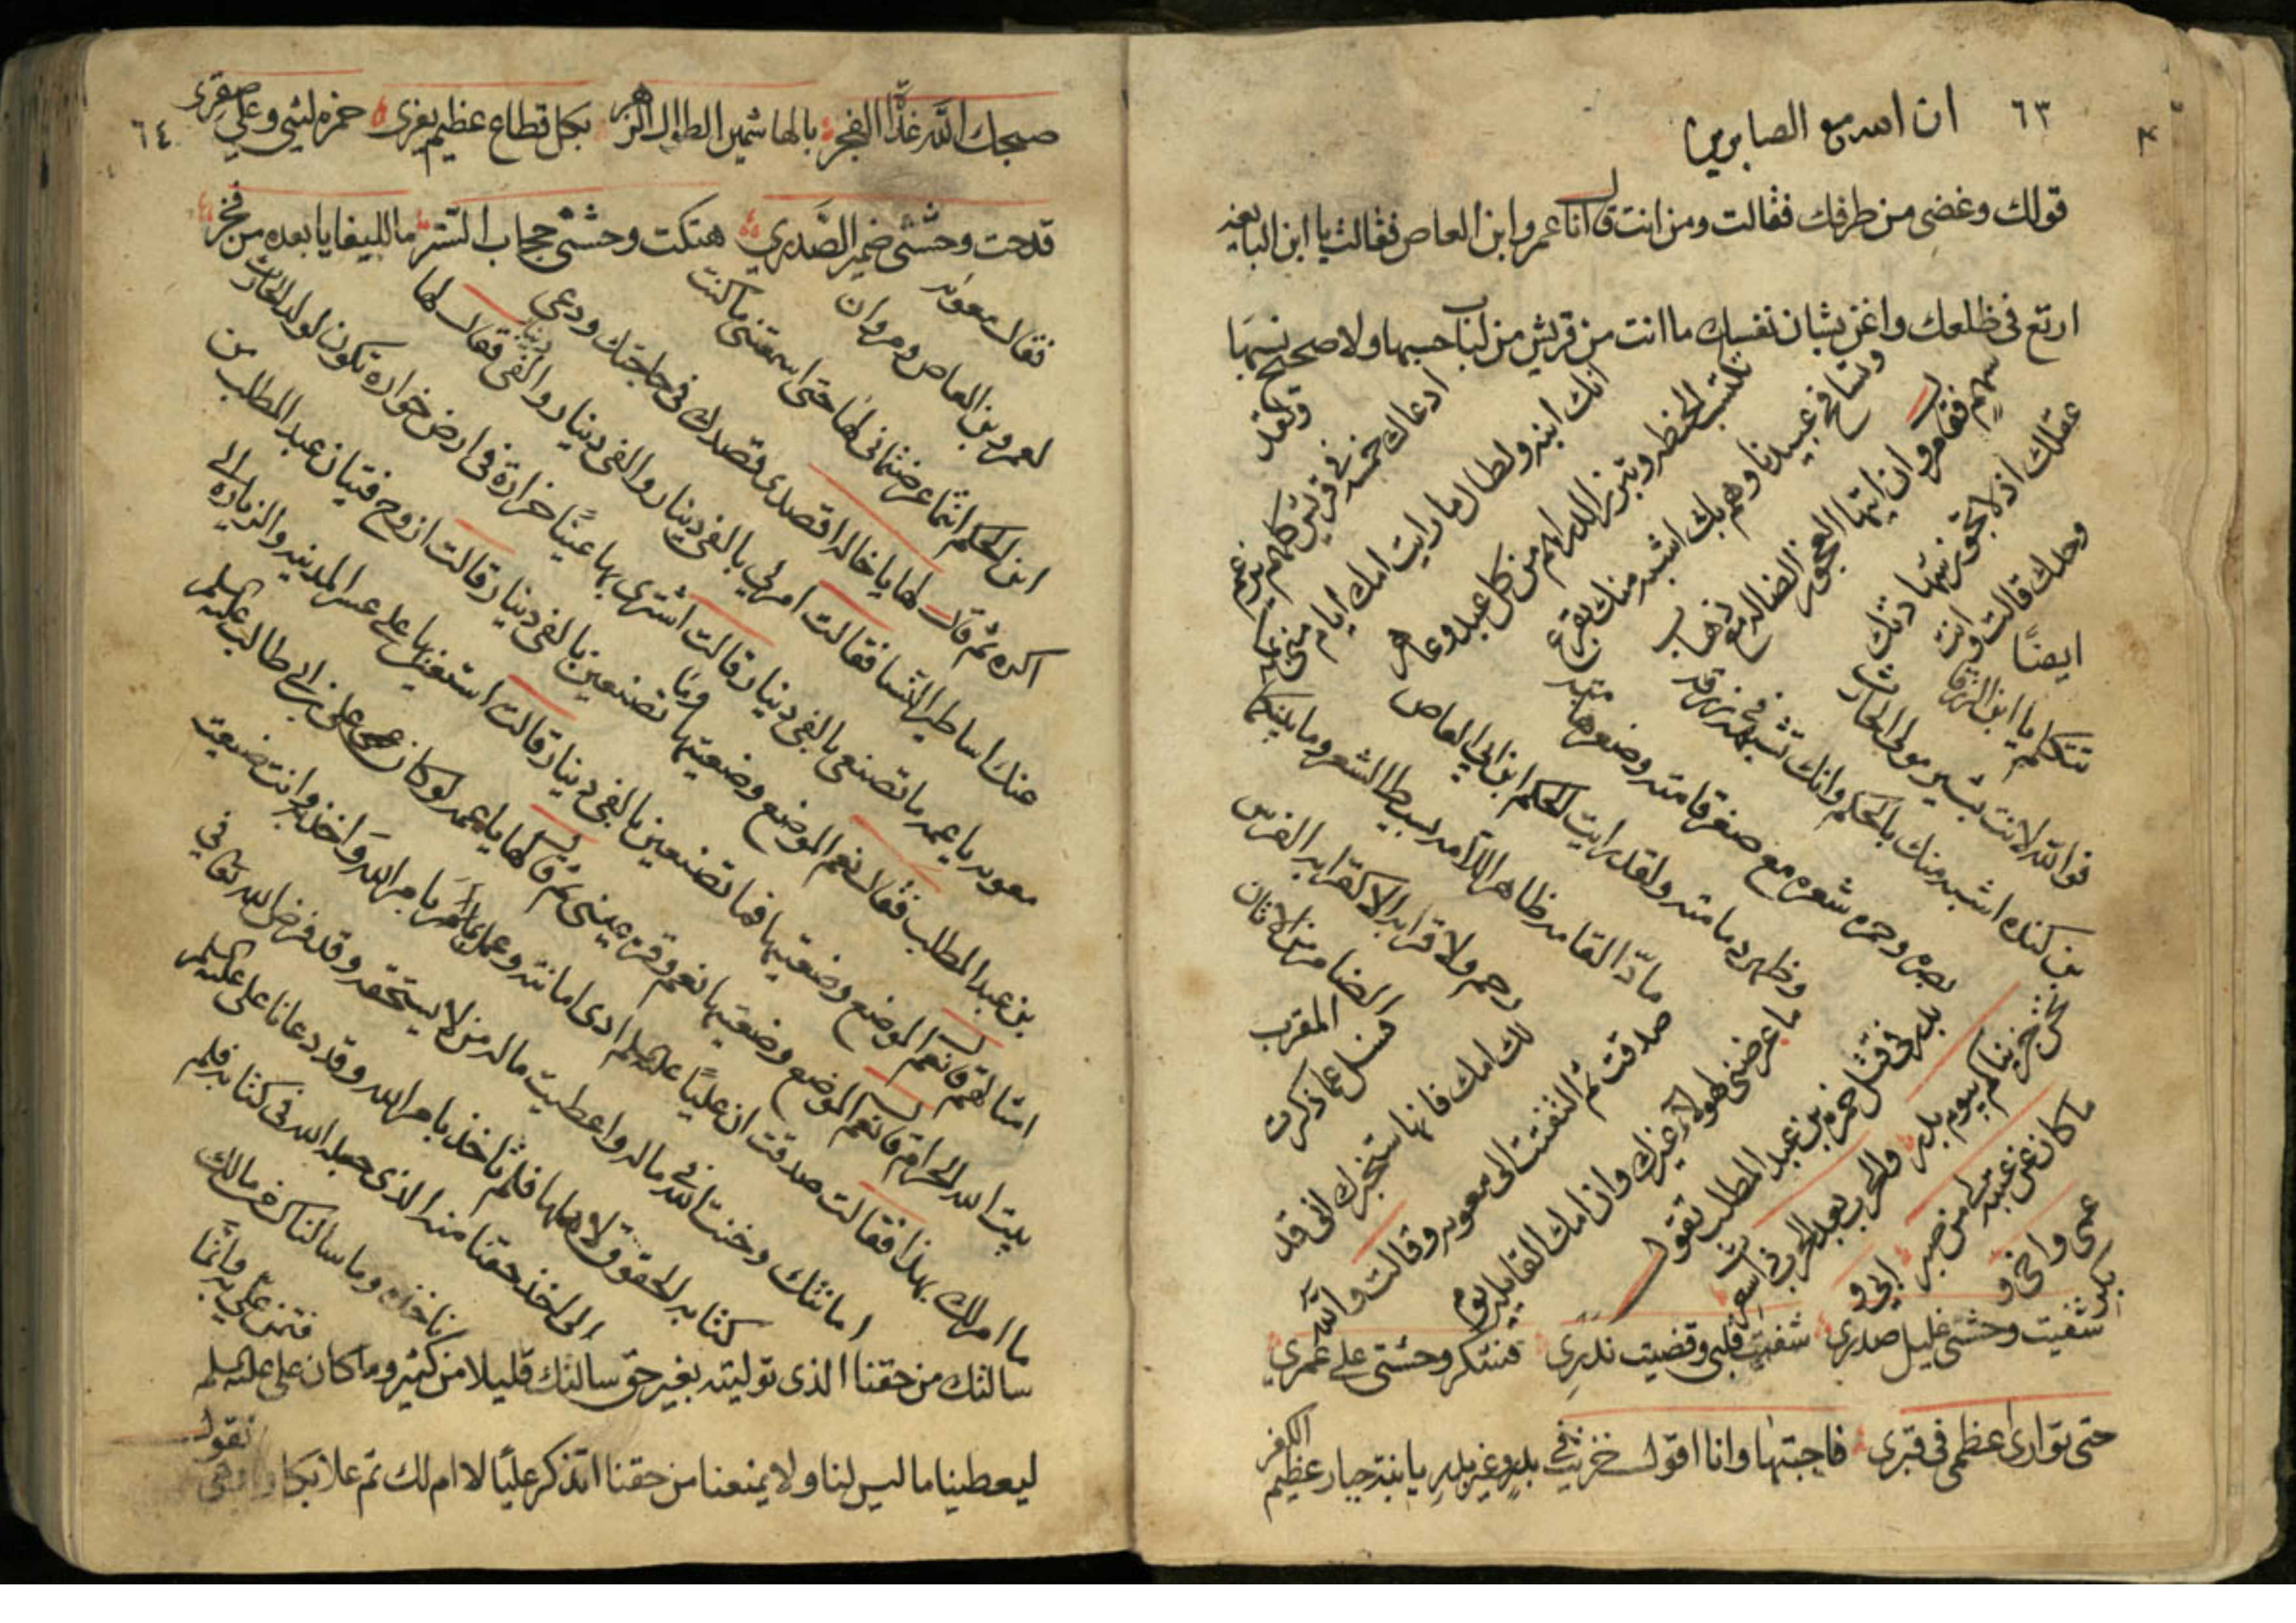 ٦٣
ان الله مع الصابرين
قولك وغضى من طرفك فقالت ومن انت قال انا عمرو ابن العاص فقالت يا ابن الباغيه
اربع فى ظلعك واعن بشان نفسك ما انت من قريش من لباب حسبها ولا صحيح نسبها
ولقد
ادعاك خمسه فى قريش كلهم يزعم
انك ابنه ولطال ما رايت امك ايام منى
تكتسب الخطر وتبرز الدراهم من كل عبد وعاهر
وتسافح عبيدنا وهم بك اشبه منك بقرع
سهم فقال مروان ايتها العجوز الضاله مع ذهاب
عقلك اذ لا تجوز شهادتك
وحلك قالت وانت
ايضًا
تتكلم يا ابن الزرقا
فوالله لانت بشير مولى الحارث
بن كنده اشبه منك بالحكم وانك تشبهه فى زرقة
بصره وحمره شعره مع صغر قامته
وظهر دمامته ولقد رايت الحكم ابن ابى العاص
ماد القامه ظاهر الادمه سبط الشعر وما بينكما
رحم ولا قرابه الا كقرابه الفرس
الضامر من الاتان
المقرب
فسل عما ذكرت
لك امك فانها ستخبرك انى قد
صدقت ثم التفتت الى معويه وقالت والله
ما عرضنى لهولآء غيرك وان امك القايله يوم
بدر فى قتل حمزه بن عبد المطلب تقول
نحن جزيناكم بيوم بدر والحرب بعد الحرب ذات سعر
ما كان عن عتبه لى من صبر ابى و
عمى واخى و
بكر
شفيت وحشى غليل صدرى شفيت قلبى وقضيت نذرى فنشكر وحشى على عمرى
حتى توارى عظمى فى قبرى فاجبتها وانا اقول خزيت فى بدر وغير بدر يا بنت جبار عظيم الكفر
٦٤
صبحك الله غداة الفجر بالهاشميين الطوال الزهر بكل قطاع عظيم يفرى حمزه ليثى وعلى صقرى
قدحت وحشى ضمير الصدرى هتكت وحشى حجاب الستر ما للبغايا بعده من فخر
فقال معويه
لعمرو بن العاص ومروان
ابن الحكم انتما عرضتمانى لها حتى اسمعتنى ما كنت
اكره ثم قال لها يا خاله اقصدى قصدك فى حاجتك ودعى
عنك اساطير النسا فقالت امر لى بالفى دينار والفى دينار والفى دينار فقال لها
معويه يا عمه ما تصنعى بالفى دينار قالت اشترى بها عينًا خرارة فى ارض خواره تكون لولد الحارث
بن عبد المطلب فقال نعم الموضع وضعتيها وما تصنعين بالفى دينار قالت ازوج فتيان عبد المطلب من
امثالهم قال نعم الموضع وضعتيها فما تصنعين بالفى دينار قالت استعين بها على عسر المدينه والزيارة الى
بيت الله الحرام قال نعم الموضع وضعتيها نعم وقرة عينى ثم قال لها يا عمه لو كان على بن ابى طالب عليه السلم
ما امر لك بهذا فقالت صدقت ان عليًا عليه السلم ادى امانته وعمل بامر الله واخذ به وانت ضيعت
امانتك وخنت الله فى ماله واعطيت ماله من لا يستحقه وقد فرض الله تعالى فى
كتابه الحقوق لاهلها فلم تاخذ بامر الله وقد دعانا على عليه السلم
الى اخذ حقنا منه الذى جعله الله فى كتابه فلم
ناخذه وما سالناك من مالك
فتمن علينا به وانما
سالتك من حقنا الذى توليته بغير حق سالتك قليلا من كثير وما كان على عليه السلم
ليعطينا ما ليس لنا ولا يمنعنا من حقنا اتذكر عليًا لا ام لك ثم علا بكاوها وهى تقول